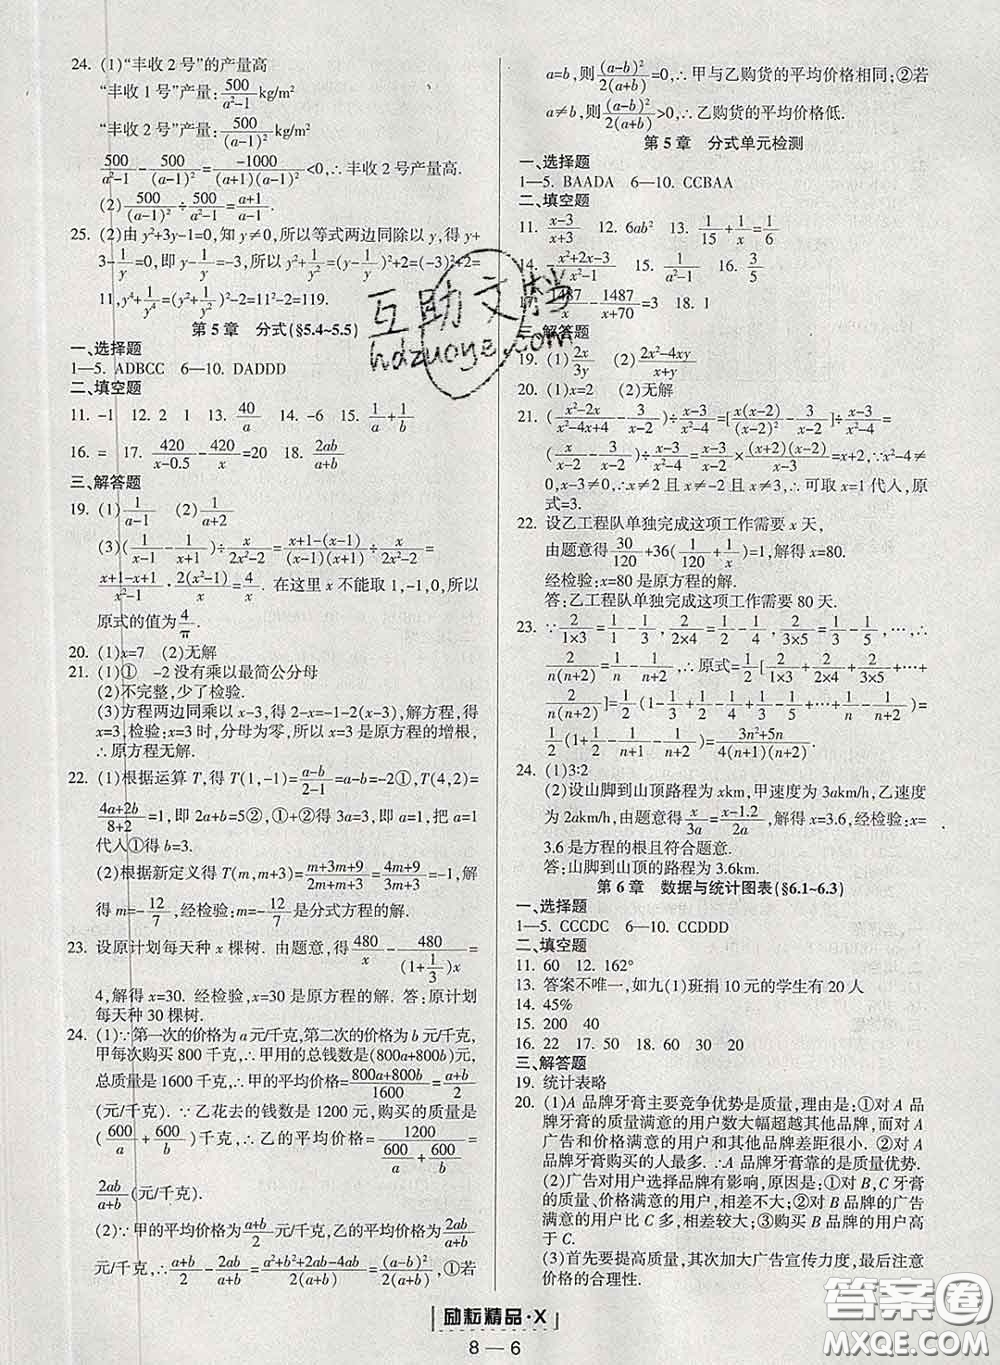 24. (1)“丰收 2 号”的产量高
“丰收 1 号”产量:500/(a²-1) kg/m²
“丰收 2 号”产量:500/(a-1)² kg/m²
500/(a²-1)-500/(a-1)²=-1000/((a+1)(a-1)²)<0,∴丰收 2 号产量高.
(2)500/(a-1)²÷500/(a²-1)=(a+1)/(a-1).
25. (2)由 y²+3y-1=0,知 y≠0,所以等式两边同除以 y,得 y+
3-1/y=0,即 y-1/y=-3,所以 y²+1/y²=(y-1/y)²+2=(-3)²+2=
11,y⁴+1/y⁴=(y²+1/y²)²-2=11²-2=119.
第 5 章 分式(§5.4~5.5)
一、选择题
1—5. ADBCC 6—10. DADDD
二、填空题
11. -1 12. 2 1 13. 40/a 14. -6 15. 1/a+1/b
16. = 17. 420/(x-0.5)-420/x=20 18. 2ab/(a+b)
三、解答题
19. (1)1/(a-1) (2)1/(a+2)
(3)(1/(x-1)-1/(x+1))÷x/(2x²-2)=(x+1-(x-1))/((x-1)(x+1))÷x/(2x²-2)=
(x+1-x+1)/(x²-1)·2(x²-1)/x=4/x. 在这里 x 不能取 1,-1,0,所以
原式的值为4/π.
20. (1)x=7 (2)无解
21. (1)① -2 没有乘以最简公分母
(2)不完整,少了检验.
(3)方程两边同乘以 x-3,得 2-x=-1-2(x-3),解方程,得
x=3,检验:x=3 时,分母为零,所以 x=3 是原方程的增根,
∴原方程无解.
22. (1)根据运算 T,得 T(1,-1)=(a-b)/(2-1)=a-b=-2①,T(4,2)=
(4a+2b)/(8+2)=1,即 2a+b=5②,①+②得 3a=3,即 a=1,把 a=1
代人①得 b=3.
(2)根据新定义得 T(m,m+3)=(m+3m+9)/(2m+m+3)=(4m+9)/(3m+3)=-1,解
得 m=-12/7,经检验:m=-12/7是分式方程的解.
23. 设原计划每天种 x 棵树. 由题意,得480/x-480/((1+1/3)x)=
4,解得 x=30. 经检验,x=30 是原方程的解. 答:原计划
每天种 30 棵树.
24. (1)∵第一次的价格为 a 元/千克,第二次的价格为 b 元/千克,
甲每次购买 800 千克,∴甲用的总钱数是(800a+800b)元,
总质量是 1600 千克,∴甲的平均价格=(800a+800b)/1600=(a+b)/2
(元/千克).∵乙花去的钱数是 1200 元,购买的质量是
(600/a+600/b)千克,∴乙的平均价格=1200/(600/a+600/b)=
2ab/(a+b)(元/千克).
(2)∵甲的平均价格为(a+b)/2元/千克,乙的平均价格为2ab/(a+b)
元/千克,∴(a+b)/2-2ab/(a+b)=(a²+b²+2ab-4ab)/(2(a+b))=(a-b)²/(2(a+b)),①若
a=b,则(a-b)²/(2(a+b))=0,∴甲与乙购货的平均价格相同;②若
a≠b,则(a-b)²/(2(a+b))>0,∴乙购货的平均价格低.
第 5 章 分式单元检测
一、选择题
1—5. BAADA 6—10. CCBAA
二、填空题
11. (x-3)/(x+3) 12. 6ab² 13. 1/15+1/x=1/6
14. -(x²+2x-3)/(x²-x-1) 15. 1/a² 16. 3/5
17. 1487/x-1487/(x+70)=3 18. 1
三、解答题
19. (1)2x/3y (2)(2x²-4xy)/(x+y)
20. (1)x=2 (2)无解
21. ((x²-2x)/(x²-4x+4)-3/(x-2))÷(x-3)/(x²-4)=[x(x-2)/(x-2)²-3/(x-2)]÷(x-3)/(x²-4)=
(x/(x-2)-3/(x-2))÷(x-3)/(x²-4)=(x-3)/(x-2)×(x+2)(x-2)/(x-3)=x+2,∵x²-4≠
0,x-3≠0,∴x≠2 且 x≠-2 且 x≠3,∴可取 x=1 代人,原
式=3.
22. 设乙工程队单独完成这项工作需要 x 天,
由题意得30/120+36(1/120+1/x)=1,解得 x=80.
经检验:x=80 是原方程的解.
答:乙工程队单独完成这项工作需要 80 天.
23. ∵2/(1×3)=1/1-1/3,2/(2×4)=1/2-1/4,2/(3×5)=1/3-1/5,…,∴
2/(n(n+2))=1/n-1/(n+2),∴原式=1/2[2/(1×3)+2/(2×4)+2/(3×5)+…+
2/(n(n+2))]=1/2(1/1-1/3+1/2-1/4+1/3-1/5+…+1/n-1/(n+2))=
1/2(1+1/2-1/(n+1)-1/(n+2))=(3n²+5n)/(4(n+1)(n+2))
24. (1)3∶2
(2)设山脚到山顶路程为 xkm,甲速度为 3akm/h,乙速度
为 2akm/h,由题意得x/3a=(x-1.2)/2a,解得 x=3.6,经检验,x=
3.6 是方程的根且符合题意.
答:山脚到山顶的路程为 3.6km.
第 6 章 数据与统计图表(§6.1~6.3)
一、选择题
1—5. CCCDC 6—10. CCDDD
二、填空题
11. 60 12. 162°
13. 答案不唯一,如九(1)班捐 10 元的学生有 20 人
14. 45%
15. 200 40
16. 22 17. 50 18. 60 30 20
三、解答题
19. 统计表略
20. (1)A 品牌牙膏主要竞争优势是质量,理由是:①对 A 品
牌牙膏的质量满意的用户数大幅超越其他品牌,而对 A
广告和价格满意的用户和其他品牌差距很小. ②对 A
品牌牙膏购买的人最多. ∴A 品牌牙膏靠的是质量优势.
(2)广告对用户选择品牌有影响,原因是:①对 B,C 牙膏
的质量、价格满意的用户,相差不大;②对 B 品牌的广告
满意的用户比 C 多,相差较大;③购买 B 品牌的用户高
于 C.
(3)首先要提高质量,其次加大广告宣传力度,最后注意
价格的合理性.
互助文档
hdzuoye.com
励耘精品·X
8—6
答案圈
MXQE.COM